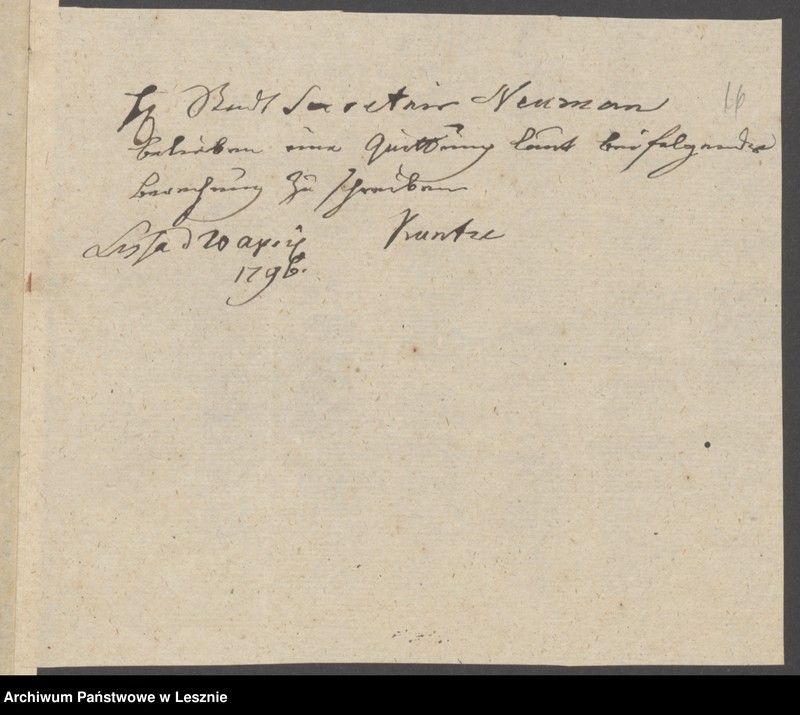 H Stadt Secretair Neuman
16
belieben eine Quittung laut beifolgender
berechnung zu schreiben
Lissa d 20 April Kuntze
1796.
Archiwum Państwowe w Lesznie